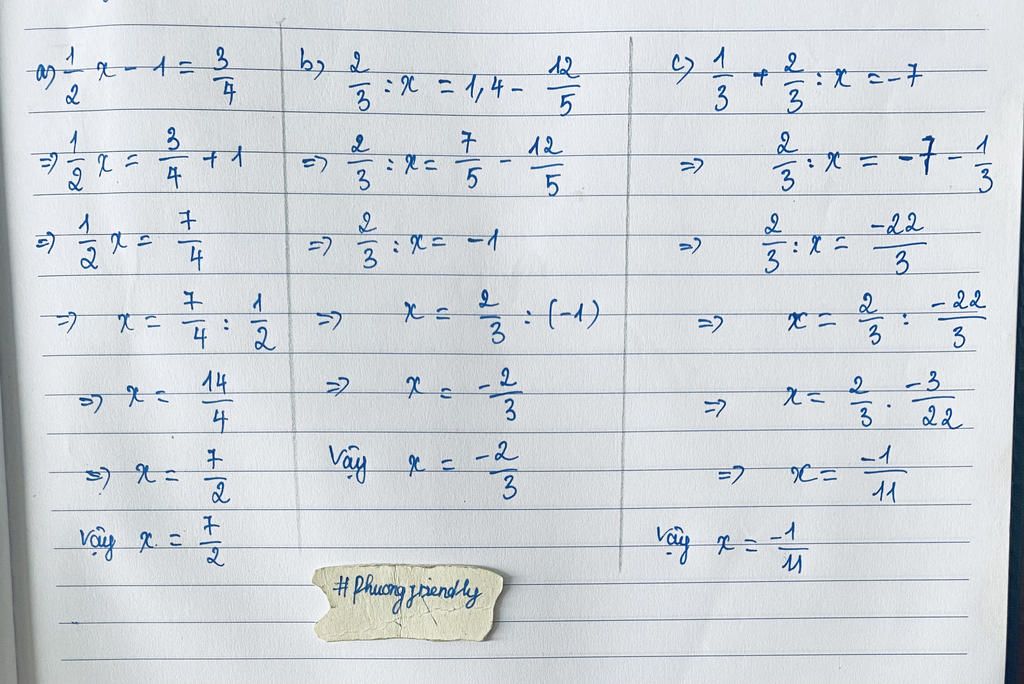 a) 1/2 x - 1 = 3/4
=> 1/2 x = 3/4 + 1
=> 1/2 x = 7/4
=> x = 7/4 : 1/2
=> x = 14/4
=> x = 7/2
Vậy x = 7/2
b) 2/3 : x = 1,4 - 12/5
=> 2/3 : x = 7/5 - 12/5
=> 2/3 : x = -1
=> x = 2/3 : (-1)
=> x = -2/3
Vậy x = -2/3
c) 1/3 + 2/3 : x = -7
=> 2/3 : x = -7 - 1/3
=> 2/3 : x = -22/3
=> x = 2/3 : -22/3
=> x = 2/3 . -3/22
=> x = -1/11
Vậy x = -1/11
#Phuongfriendly